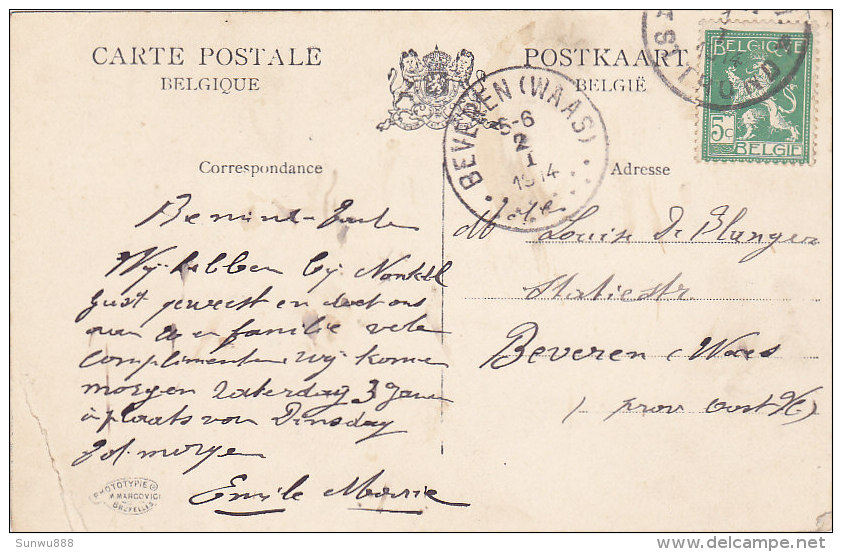 CARTE POSTALE
BELGIQUE
POSTKAART
BELGIË
BELGIQUE
5c
BELGIE
ST TROND
BEVEREN (WAAS)
5-6
2
I
1914
Correspondance
Adresse
Beminde
Wij hebben bij Nonkel
Just geweest en doet ons
aan de familie vele
complimenten wij komen
morgen Zaterdag 3 Janu
in plaats van Dinsdag
Tot morgen
Emile Marie
Louise De
Statiestr.
Beveren (Waes
(prov Oost Vl)
PHOTOTYPIE
M. MARCOVICI
BRUXELLES
Sunwu888
www.delcampe.net